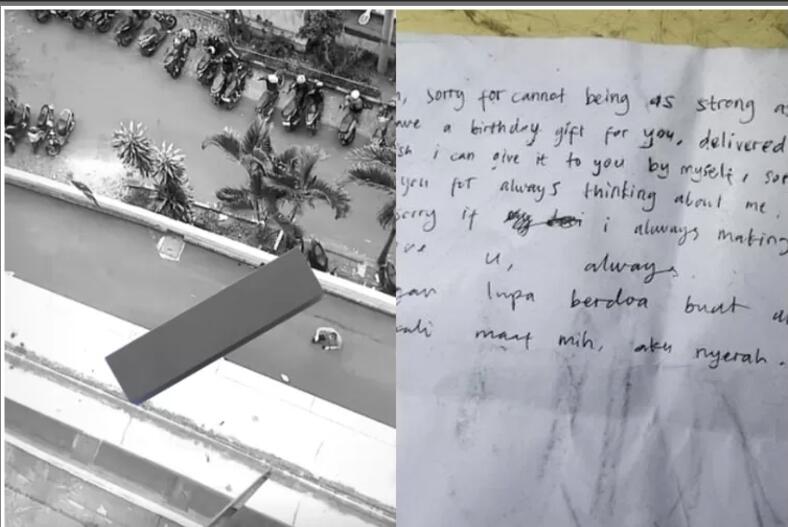 sorry for cannot being as strong as
ave a birthday gift for you, delivered
sh i can give it to you by myself, sor
you for always thinking about me.
sorry if i always making
ve u, always
gan lupa berdoa buat
kali maaf mih, aku nyerah.